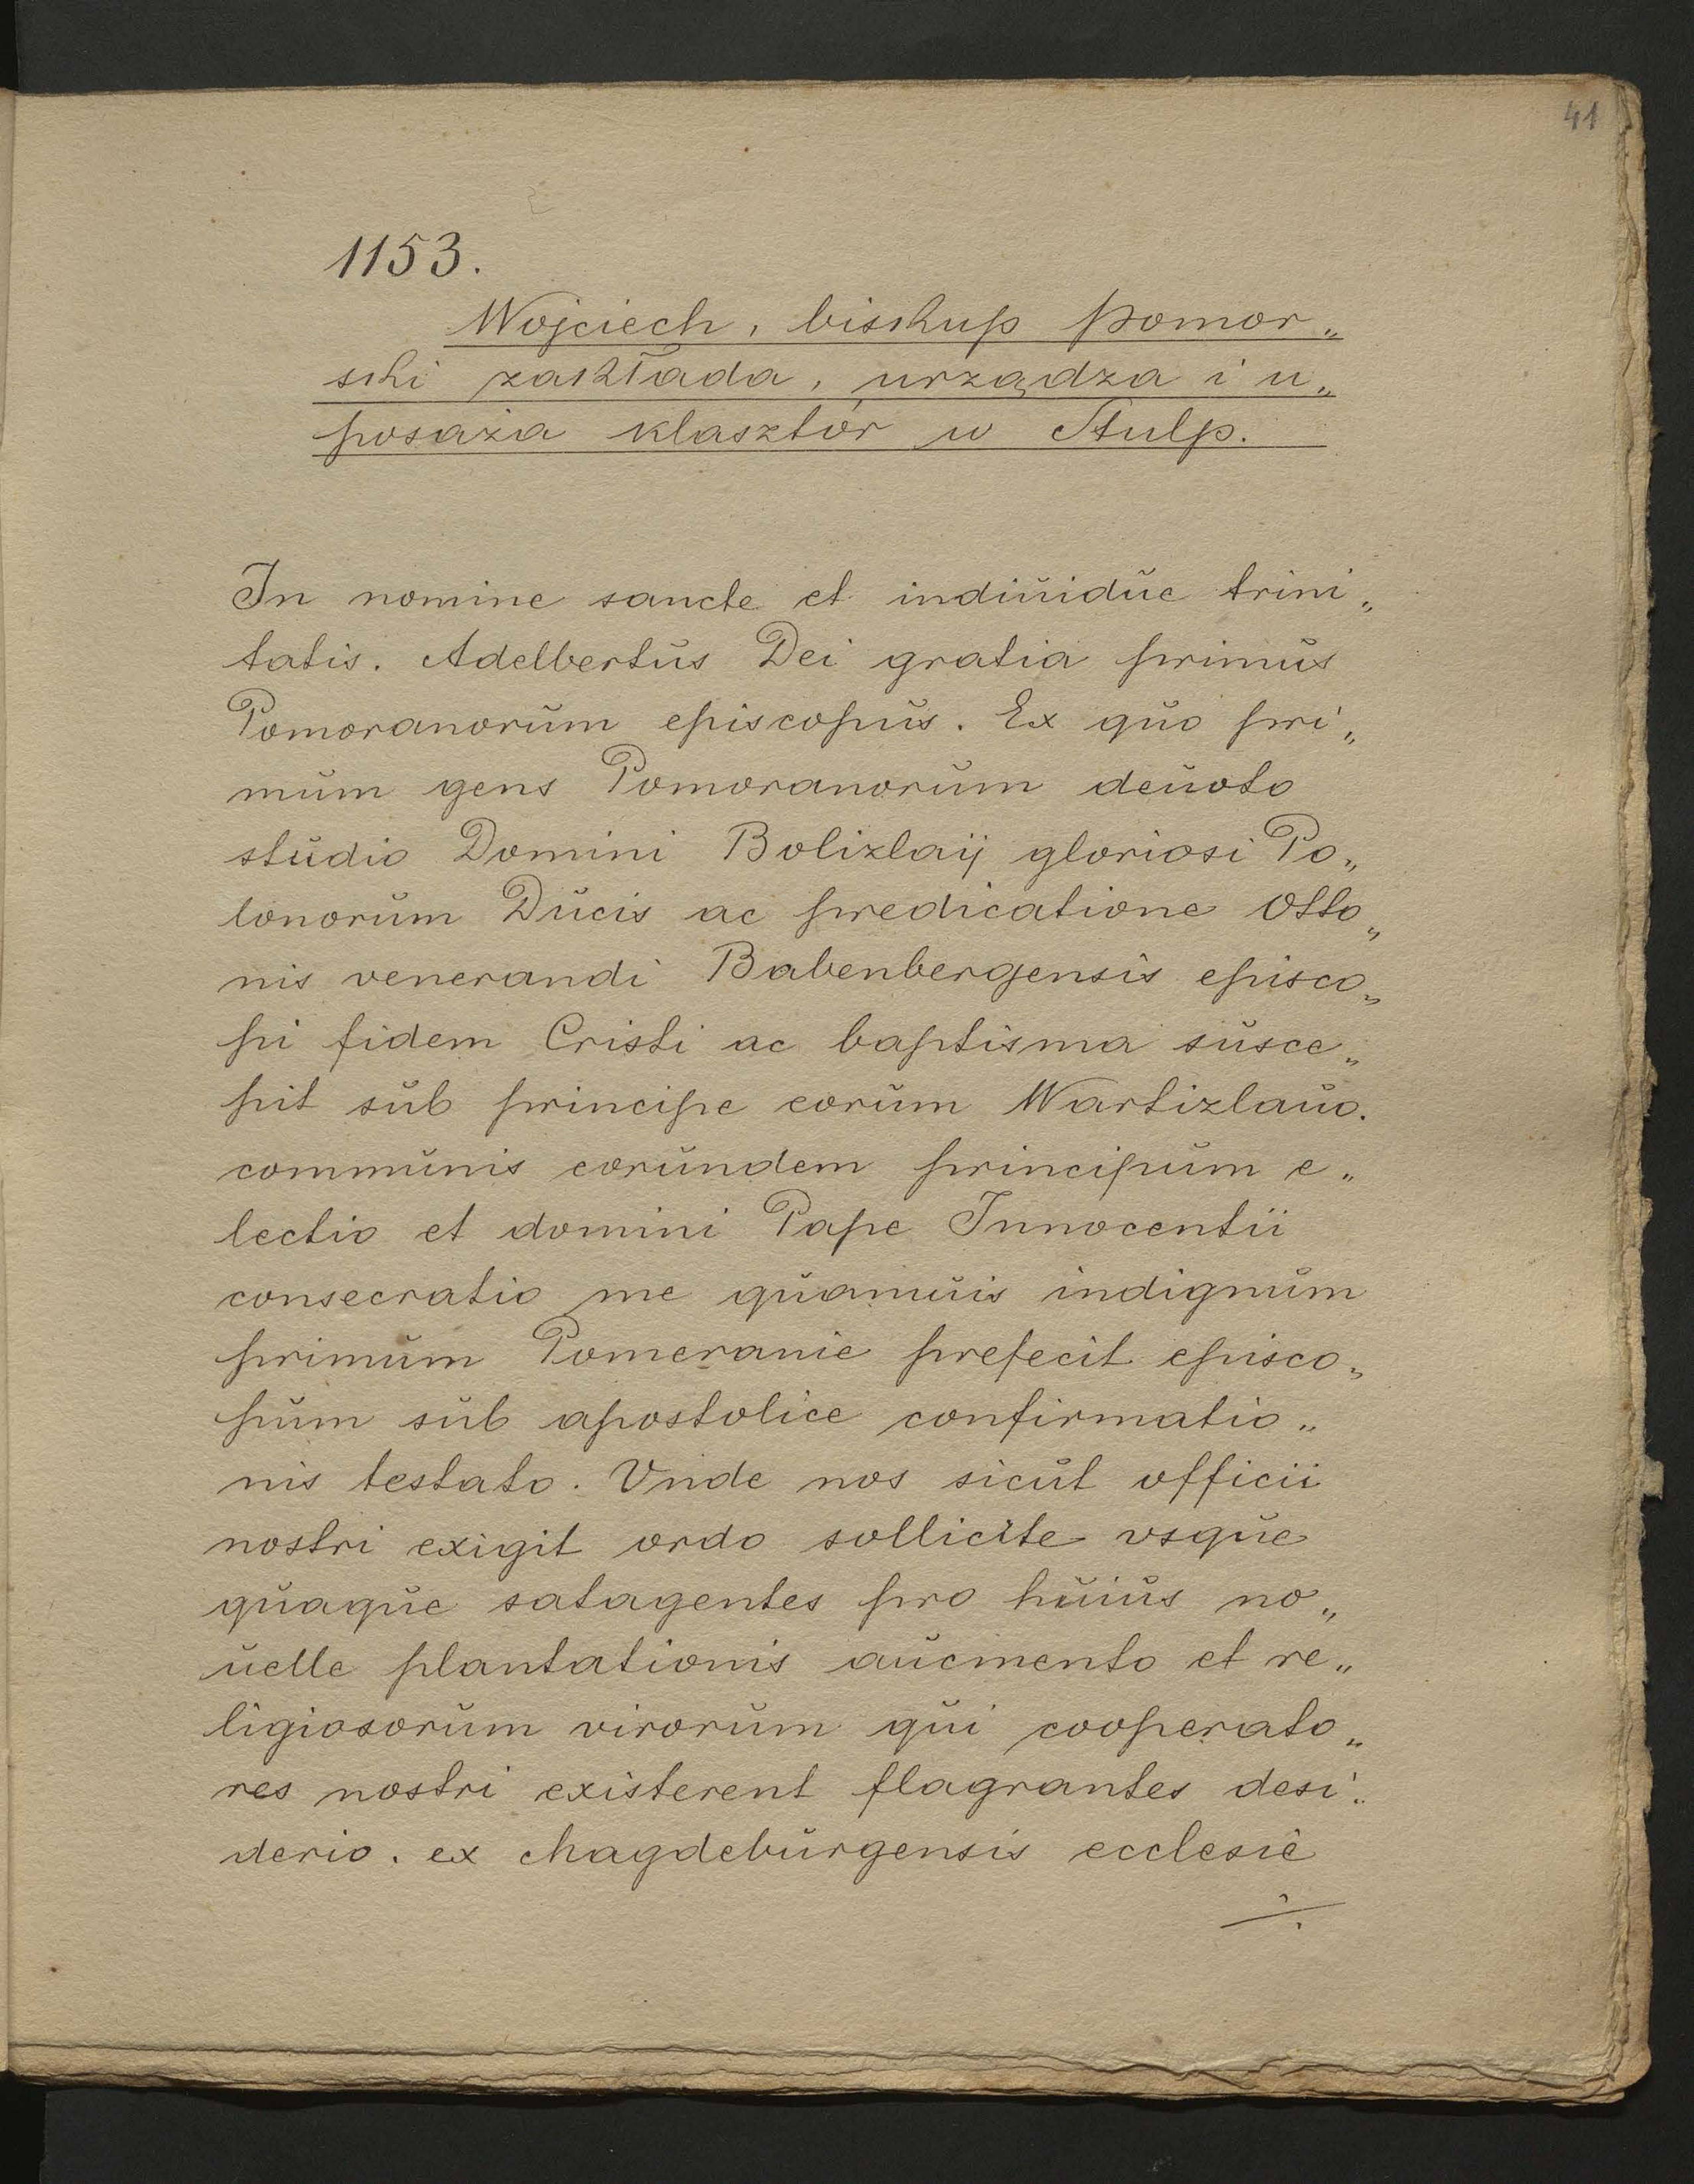 41
1153.
Wojciech, biskup pomor„
ski zakłada, urządza i u„
posaża klasztór w Stulp.
In nomine sancte et indiuidue trini„
tatis. Adelbertus Dei gratia primus
Pomoranorum episcopus. Ex quo pri„
mum gens Pomoranorum deuoto
studio Domini Bolizlaij gloriosi Po„
lonorum Ducis ac predicatione Otto„
nis venerandi Babenbergensis episco„
pi fidem Cristi ac baptisma susce„
pit sub principe eorum Wartizlauo.
communis eorundem principum e„
lectio et domini Pape Innocentii
consecratio me quamuis indignum
primum Pomeranie prefecit episco„
pum sub apostolice confirmatio„
nis testato. Vnde nos sicut officii
nostri exigit ordo sollicite vsque
quaque satagentes pro huius no„
uelle plantationis aucmento et re„
ligiosorum virorum qui cooperato„
res nostri existerent flagrantes desi„
derio. ex Magdeburgensis ecclesie
·/.